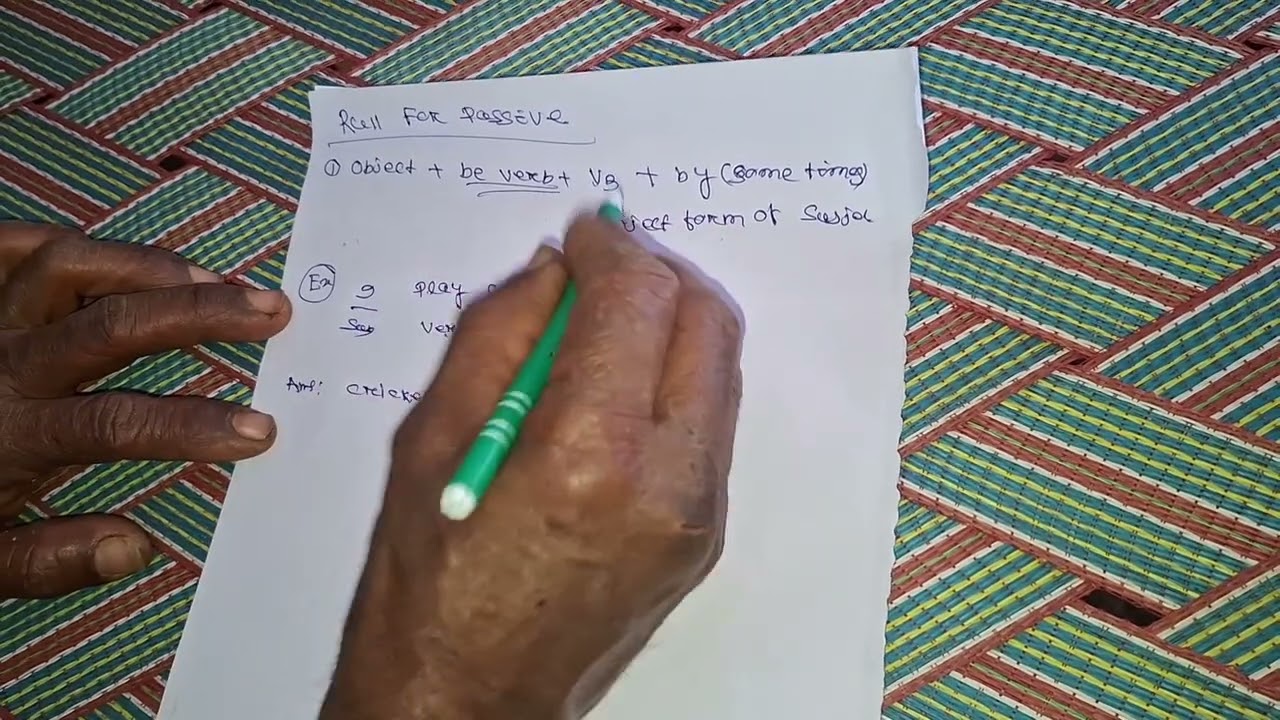 Rcell FOR Passive
① Object + be verb + V3 + by (some times)
ject form of Subje
Ex I play
Sub Ver
Ans: cricke